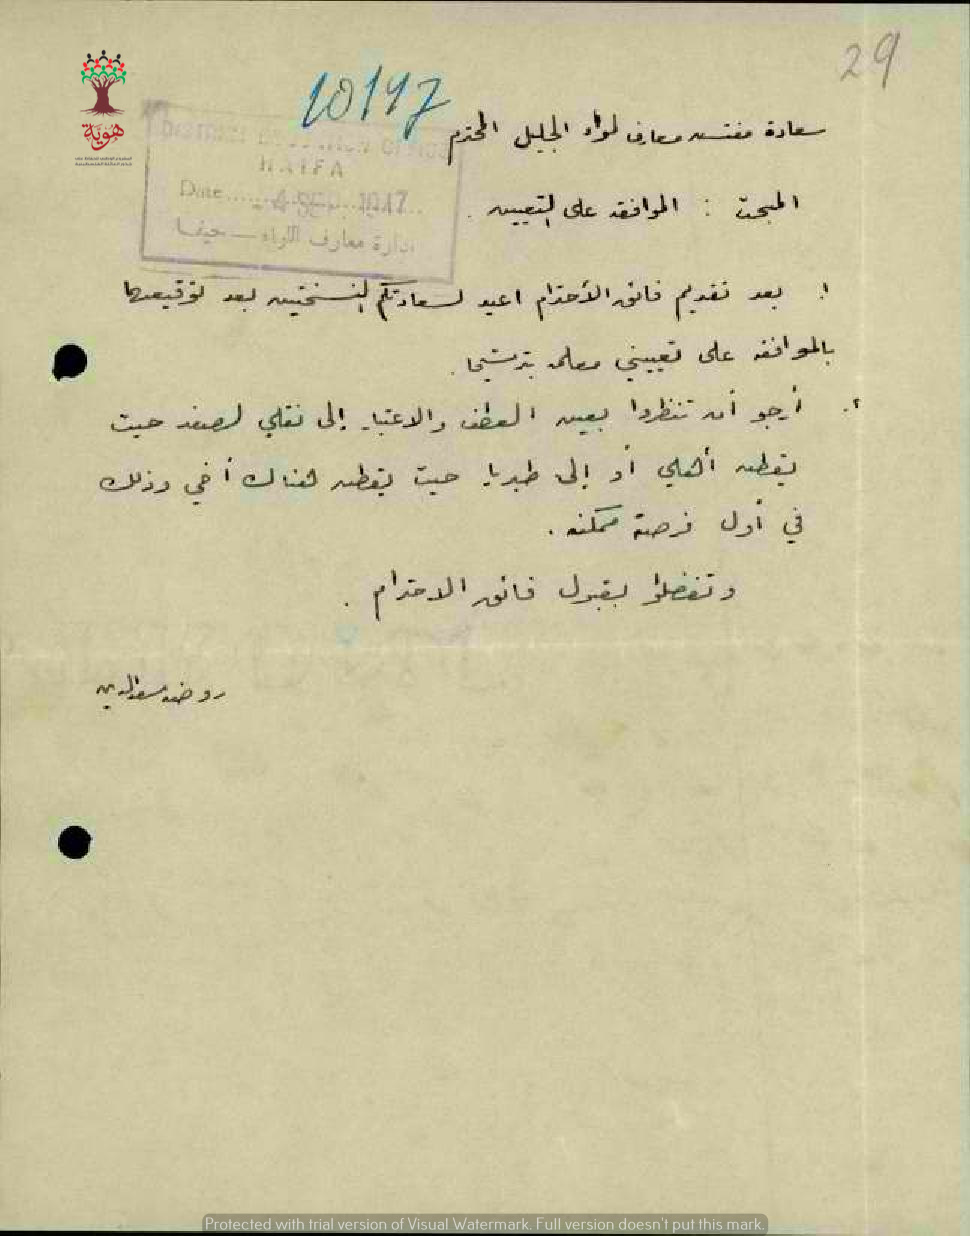 29
10147
سعادة مفتش معارف لواء الجليل المحترم
DISTRICT EDUCATION OFFICE
HAIFA
Date 4 SEP 1947
ادارة معارف اللواء — حيفا
هوية
المبحث : الموافقة على التعيين .
١. بعد تقديم فائق الأحترام اعيد لسعادتكم النسختين بعد توقيعهما
بالموافقة على تعييني معلمة بترشيحا .
٢. أرجو أن تنظروا بعين العطف والاعتبار إلى نقلي لصفد حيث
يقطن أهلي أو إلى طبريا حيث يقطن هناك أخي وذلك
في أول فرصة ممكنة .
وتفضلوا بقبول فائق الاحترام .
روضة سعد الدين
Protected with trial version of Visual Watermark. Full version doesn't put this mark.